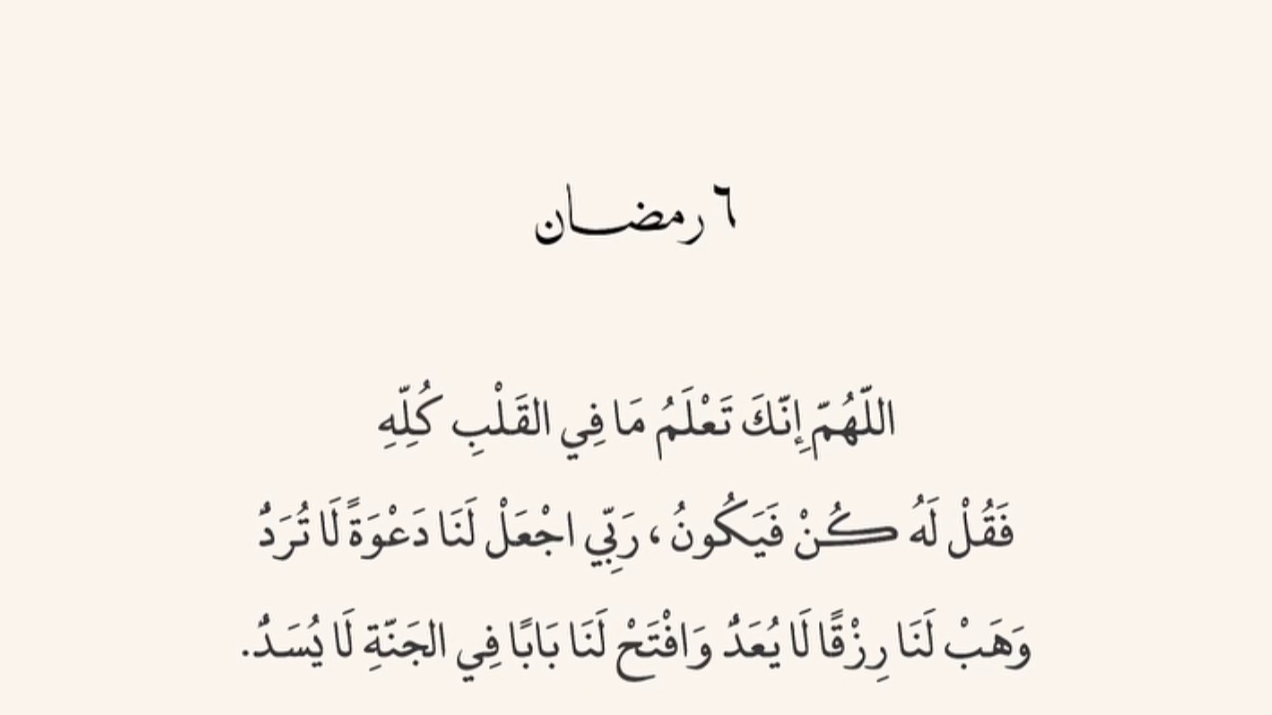 ٦ رمضان
اللّهُمّ إِنّكَ تَعْلَمُ مَا فِي القَلْبِ كُلِّهِ
فَقُلْ لَهُ كُنْ فَيَكُونُ ، رَبِّي اجْعَلْ لَنَا دَعْوَةً لَا تُرَدُّ
وَهَبْ لَنَا رِزْقًا لَا يُعَدُّ وَافْتَحْ لَنَا بَابًا فِي الجَنّةِ لَا يُسَدُّ.